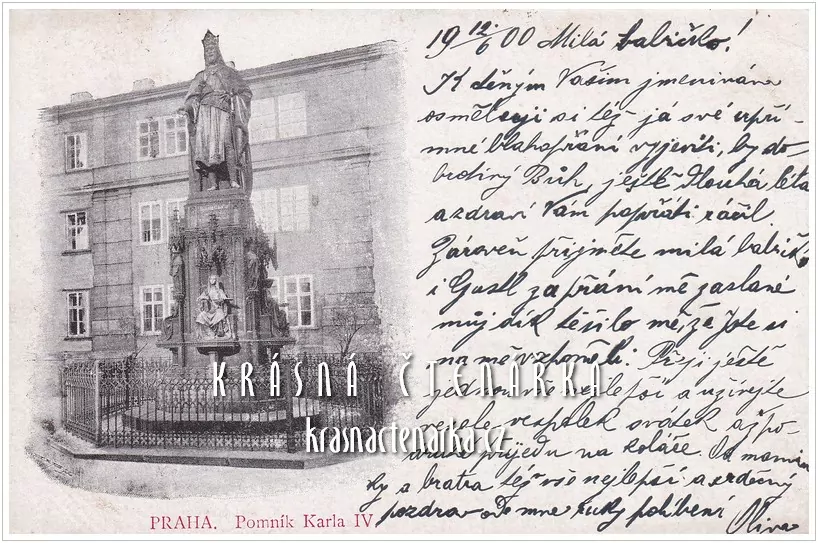 19 12./6 00 Milá babičko!
K děným Vašim jmeninám
osměluji si též já své upří-
mné blahopřání vyjeviti, by do-
brotivý Bůh, ještě dlouhá léta
a zdraví Vám popřáti ráčil
Zároveň přijměte milá babičko
i Gustl za přání mě zaslané
můj dík těšilo mě, že jste si
na mě vzpoměli. Přeji ještě
jednou vše nejlepší a užívejte
vesele vespolek svátek až po
přijedu na koláče. Od mamin
ky a bratra též vše nejlepší a srdečný
pozdrav ode mne ruky políbení
KRÁSNÁ ČTENÁŘKA
krasnactenarka.cz
PRAHA. Pomník Karla IV